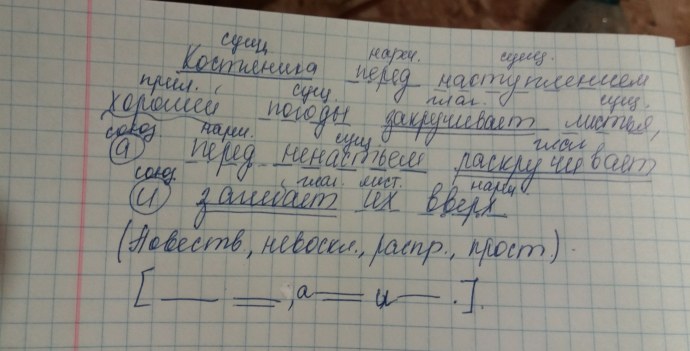 сущ. нареч. сущ.
Костяника перед наступлением
прил. сущ. глаг. сущ.
хорошей погоды закручивает листья,
союз нареч. сущ. глаг.
а перед ненастьем раскручивает
союз. глаг. мест. нареч.
и загибает их вверх
(Повеств, невоскл., распр., прост.)
[ , а и . ].